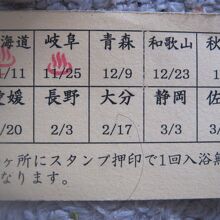 海道 岐阜 青森 和歌山 秋
1/11 11/25 12/9 12/23
愛媛 長野 大分 静岡 佐
/20 2/3 2/17 3/3
ヶ所にスタンプ押印で1回入浴無
なります。